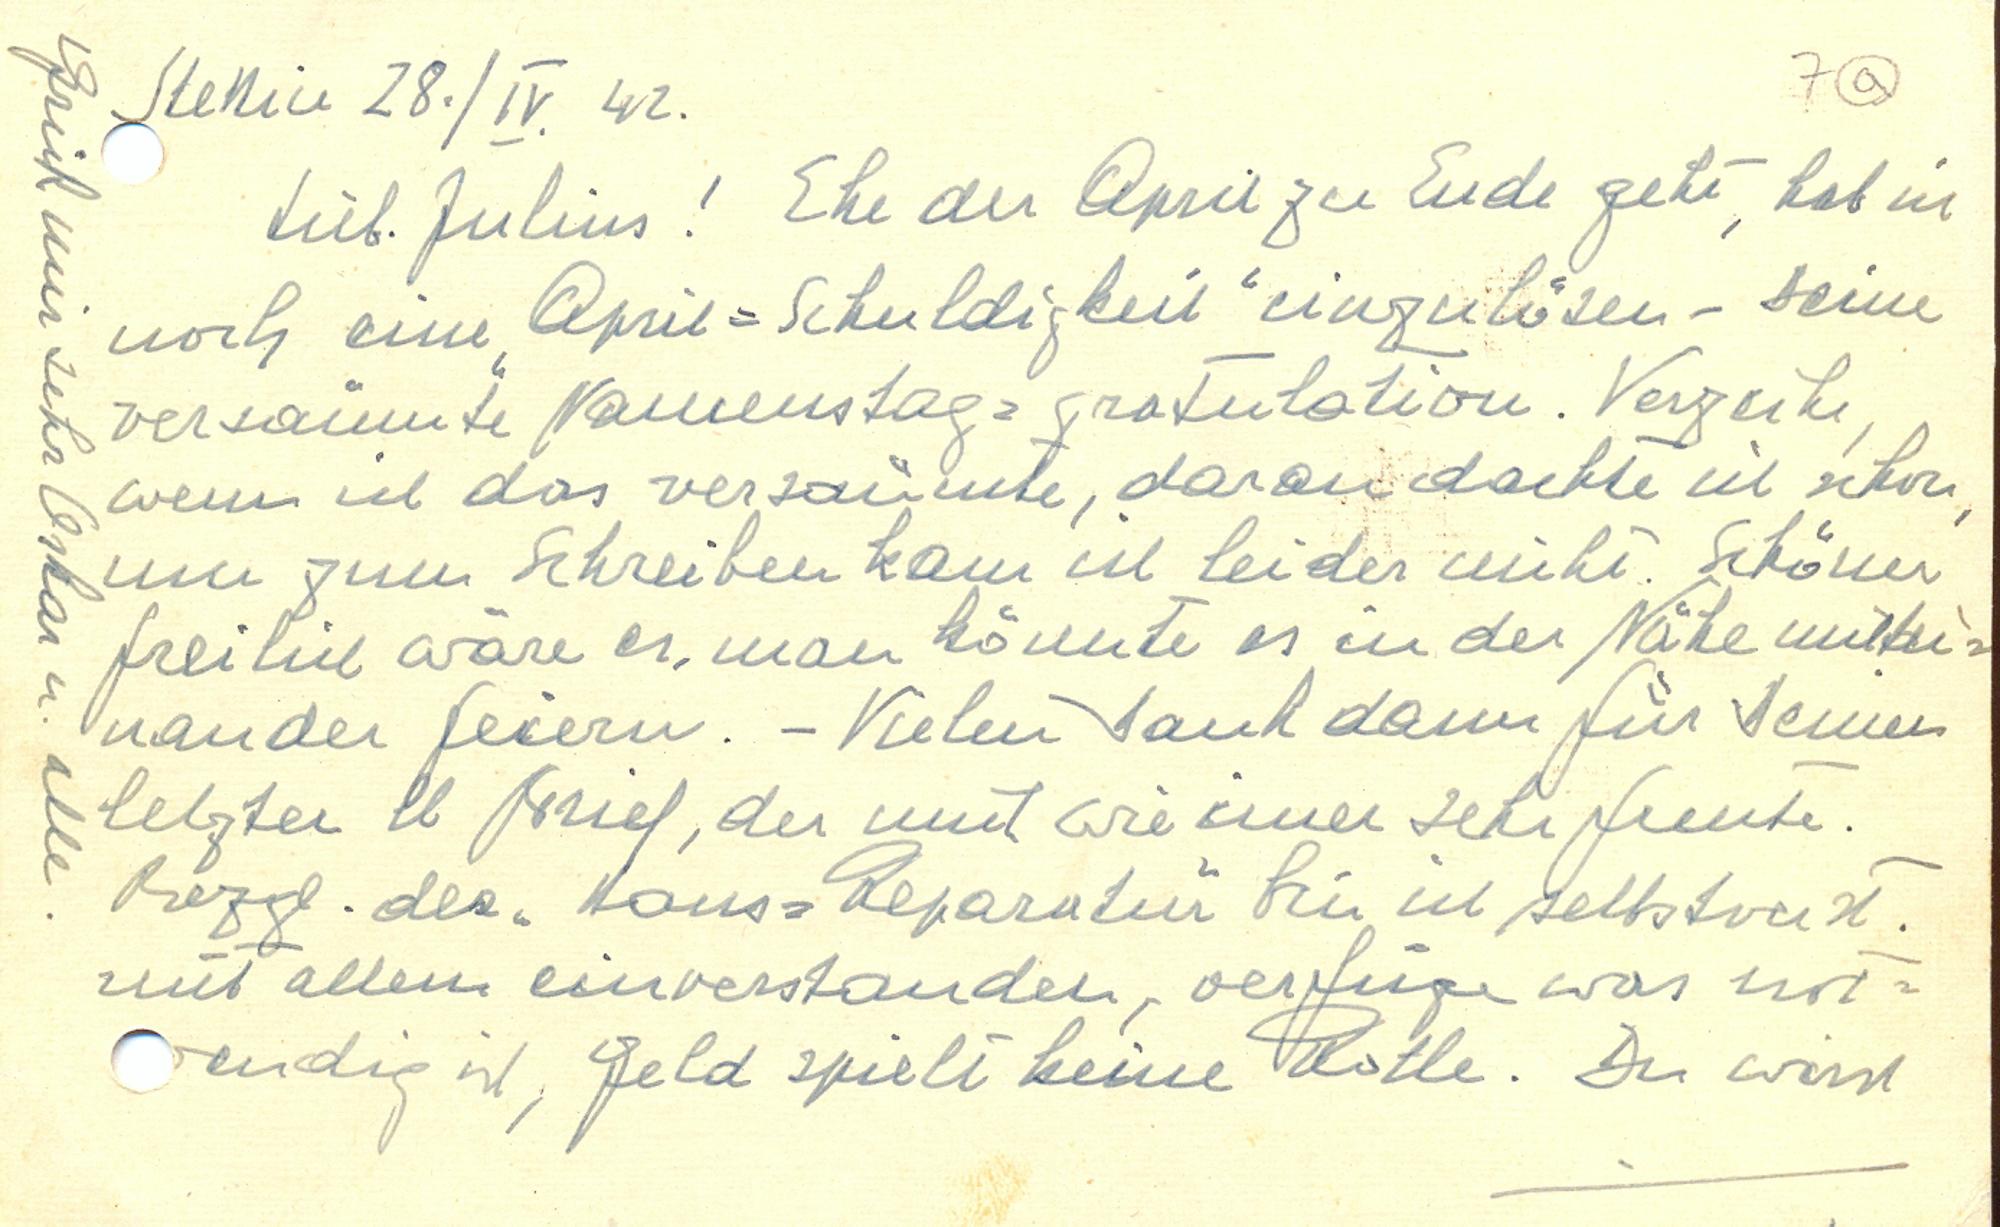 Stettin 28./IV. 42.
7 a
Lieb. Julius! Ehe der April zu Ende geht, hab ich
noch eine „April=Schuldigkeit“ einzulösen – Deine
versäumte Namenstag=gratulation. Verzeihe,
wenn ich das versäumte, daran dachte ich schon,
nur zum Schreiben kam ich leider nicht. Schöner
freilich wäre es, man könnte es in der Nähe mitei=
nander feiern. – Vielen Dank dann für Deinen
letzten lb Brief, der mich wie imer sehr freute.
Bezgl. der Haus=Reparatur bin ich selbstverst.
mit allem einverstanden, verfüge was not=
wendig ist, Geld spielt keine Rolle. Du wirst
Grüß mir sehr Oskar u. alle.